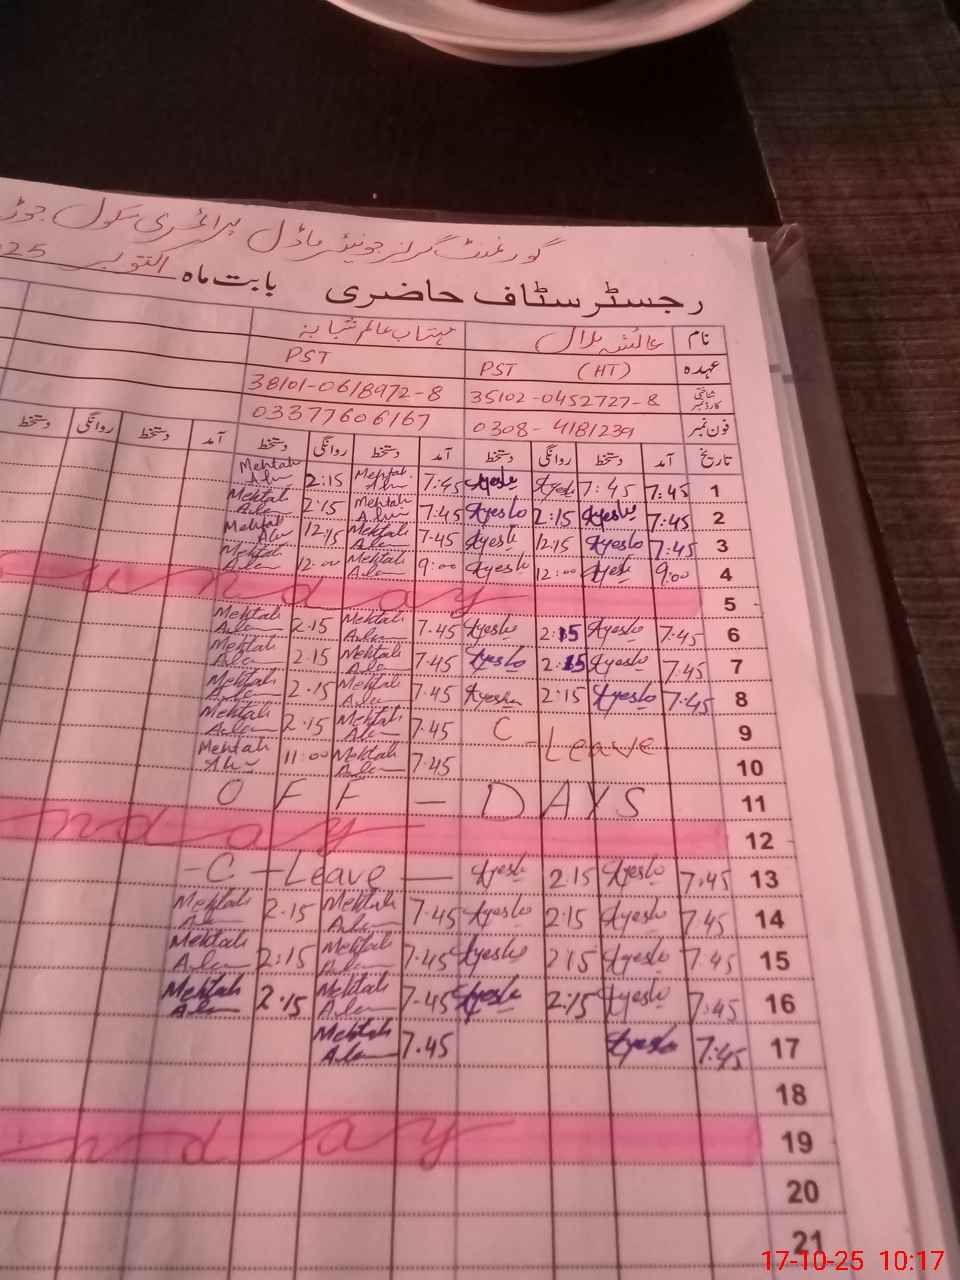 گورنمنٹ گرلز جونیئر ماڈل پرائمری سکول جوڑ
رجسٹر سٹاف حاضری بابت ماہ اکتوبر 025
نام عائشہ بلال مہتاب عالم شبانہ
عہدہ PST (HT) PST
شناختی کارڈ نمبر 35102-0452727-8 38101-0618972-8
فون نمبر 0308-4181239 03377606167
تاریخ آمد دستخط روانگی دستخط آمد دستخط روانگی دستخط آمد دستخط روانگی دستخط
1 7:45 7:45 Ayesha 7:45 Mehtab Alam 2:15 Mehtab Alam
2 7:45 Ayesha 2:15 Ayesha 7:45 Mehtab Alam 2:15 Mehtab Alam
3 7:45 Ayesha 12:15 Ayesha 7:45 Mehtab Alam 12:15 Mehtab Alam
4 9:00 Ayesha 12:00 Ayesha 9:00 Mehtab Alam 12:00 Mehtab Alam
5 Sunday
6 7:45 Ayesha 2:15 Ayesha 7.45 Mehtab Alam 2.15 Mehtab Alam
7 7:45 Ayesha 2:15 Ayesha 7.45 Mehtab Alam 2.15 Mehtab Alam
8 7:45 Ayesha 2:15 Ayesha 7.45 Mehtab Alam 2.15 Mehtab Alam
9 C-Leave 7.45 Mehtab Alam 2.15 Mehtab Alam
10 7.45 Mehtab Alam 11:00 Mehtab Alam
11 OFF - DAYS
12 nday
13 7.45 Ayesha 2.15 Ayesha -C-Leave-
14 7.45 Ayesha 2.15 Ayesha 7.45 Mehtab Alam 2.15 Mehtab Alam
15 7.45 Ayesha 2.15 Ayesha 7.45 Mehtab Alam 2:15 Mehtab Alam
16 7.45 Ayesha 2:15 Ayesha 7.45 Mehtab Alam 2.15 Mehtab Alam
17 7:45 Ayesha 7.45 Mehtab Alam
18
19 nday
20
21
17-10-25 10:17